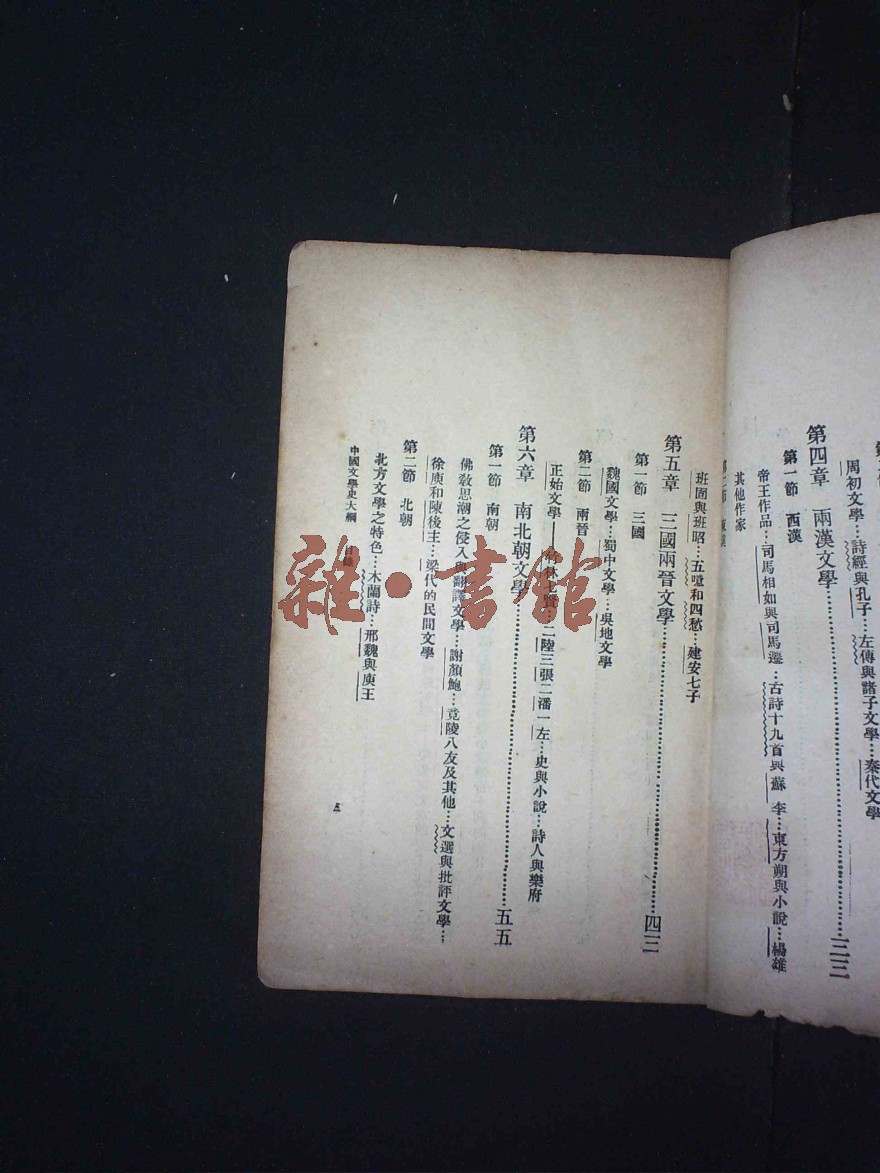 周初文學…詩經與孔子…左傳與諸子文學…秦代文學
第四章 兩漢文學…三三
第一節 西漢
帝王作品…司馬相如與司馬遷…古詩十九首與蘇 李…東方朔與小說…楊雄
其他作家
第二節 東漢
班固與班昭…五噫和四愁…建安七子
第五章 三國兩晉文學…四三
第一節 三國
魏國文學…蜀中文學…吳地文學
第二節 兩晉
正始文學——竹林七賢…二陸三張二潘一左…史與小說…詩人與樂府
第六章 南北朝文學…五五
第一節 南朝
佛教思潮之侵入與翻譯文學…謝顏鮑…竟陵八友及其他…文選與批評文學…
徐庾和陳後主…梁代的民間文學
第二節 北朝
北方文學之特色…木蘭詩…邢魏與庾王
中國文學史大綱 目錄
三
雜·書館